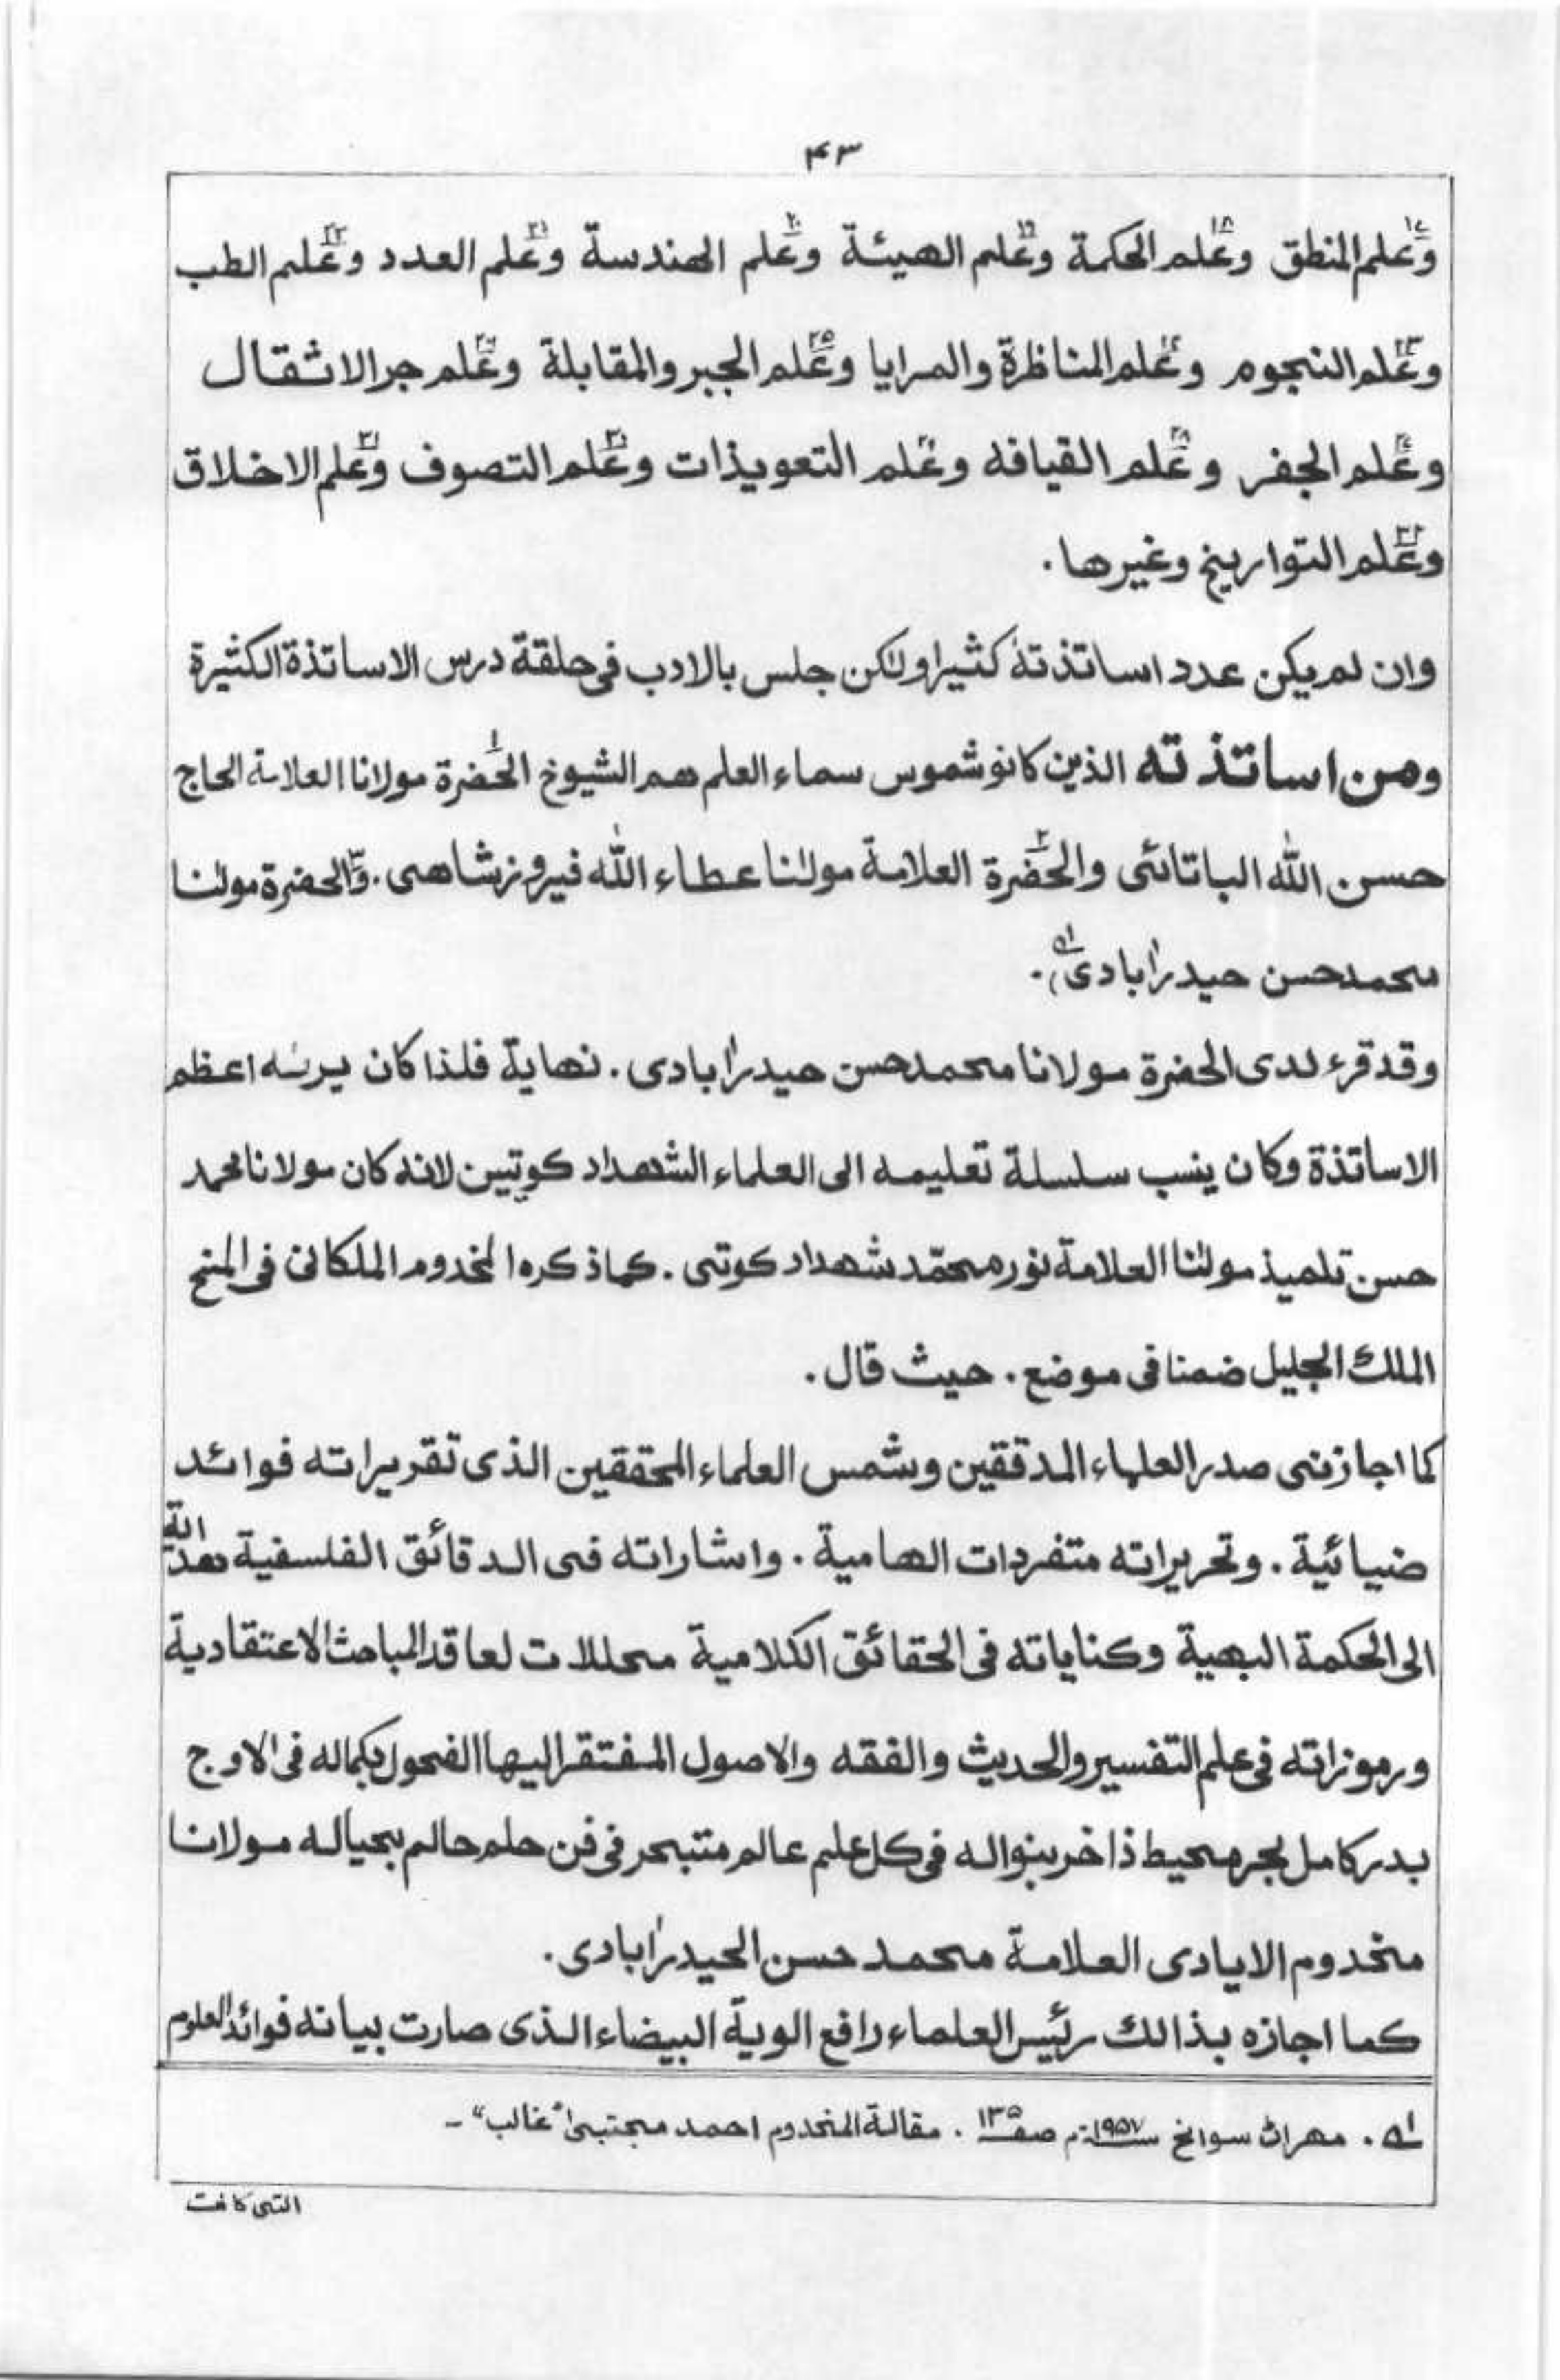 ۴۳
وعلم المنطق وعلم الحكمة وعلم الهيئة وعلم الهندسة وعلم العدد وعلم الطب
وعلم النجوم وعلم المناظرة والمرايا وعلم الجبر والمقابلة وعلم جر الاثقال
وعلم الجفر وعلم القيافه وعلم التعويذات وعلم التصوف وعلم الاخلاق
وعلم التواريخ وغيرها.
وان لم يكن عدد اساتذته كثيرا ولكن جلس بالادب فى حلقة درس الاساتذة الكثيرة
ومن اساتذته الذين كانو شموس سماء العلم هم الشيوخ الحضرة مولانا العلامة الحاج
حسن الله الپاتائى والحضرة العلامة مولٰنا عطاء الله فيروزشاهى. والحضرة مولٰنا
محمد حسن حيدرآبادى.
وقد قرء لدى الحضرة مولانا محمد حسن حيدرآبادى. نهاية فلذا كان يرئه اعظم
الاساتذة وكان ينسب سلسلة تعليمه الى العلماء الشهداد كوتيين لانه كان مولانا محمد
حسن تلميذ مولٰنا العلامة نور محمّد شهداد كوتى. كماذكره المخدوم الملكانى فى المنح
الملك الجليل ضمنا فى موضع. حيث قال.
كما اجازنى صدر العلماء المدققين وشمس العلماء المحققين الذى تقريراته فوائد
ضيائية. وتحريراته متفردات الهامية. واشاراته فى الدقائق الفلسفية هداية
الى الحكمة البهية وكناياته فى الحقائق الكلامية محللات لعاقد المباحث الاعتقادية
ورموزاته فى علم التفسير والحديث والفقه والاصول المفتقر اليها الفحول بكماله فى الاوج
بدر كامل بحر محيط ذاخر بنواله فى كل علم عالم متبحر فى فن حلم حالم بحياله مولانا
مخدوم الايادى العلامة محمد حسن الحيدرآبادى.
كما اجازه بذالك رئيس العلماء رافع الوية البيضاء الذى صارت بيانه فوائد العلوم
۱ه. مهران سوانح سنه ۱۹۵۷م صفه ۱۳۵. مقالة المخدوم احمد مجتبىٰ "غالب" -
التى كافت